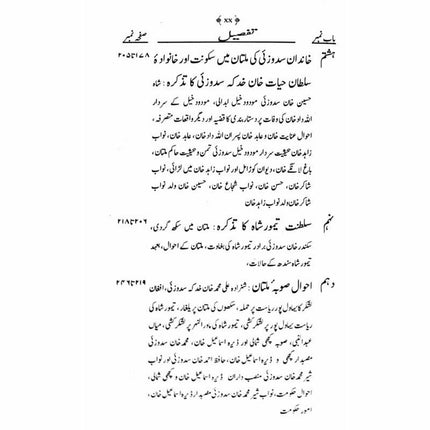 ﴿xx﴾
باب نمبر تفصیل صفحہ نمبر
ہشتم خاندان سدوزئی کی ملتان میں سکونت اور خانوادۂ ۱۷۸تا۲۰۵
سلطان حیات خان خدکہ سدوزئی کا تذکرہ: شاہ
حسین خان سدوزئی مودود خیل ابدالی، مودود خیل کے سردار
اللہ داد خان کی وفات پر دستار بندی کا قضیہ اور دیگر واقعات متفرقہ،
احوال عنایت خان و عابد خان پسران اللہ داد خان، عابد خان، نواب
زاہد خان بحیثیت سردار مودود خیل سدوزئی تمن و بحیثیت حاکم ملتان،
باغ لانگے خان، دیوان کوڑا مل اور نواب زاہد خان میں لڑائی، نواب
شاکر خان، حسن خان، نواب شجاع خان، حسین خان ولد نواب
شاکر خان ولد نواب زاہد خان
نہم سلطنت تیمور شاہ کا تذکرہ: ملتان میں سکھ گردی، ۲۰۶تا۲۱۸
سکندر خان سدوزئی برادر تیمور شاہ کی بغاوت، ملتان کے احوال، بعہد
تیمور شاہ سندھ کے حالات
دہم احوال صوبۂ ملتان: شہزادہ علی محمد خان خدکہ سدوزئی، افغان ۲۱۹تا۲۴۶
لشکر کا بہاول پور ریاست پر حملہ، سکھوں کی ملتان پر یلغار، تیمور شاہ کی
ریاست بہاول پور پر لشکر کشی، تیمور شاہ کی ماورالنہر پر لشکر کشی، میاں
عبدالنبی، صوبہ کچھی شمالی اور ڈیرہ اسماعیل خان، محمد خان سدوزئی
منصبدار کچھی و ڈیرہ اسماعیل خان، حافظ احمد خان سدوزئی اور نواب
شیر محمد خان سدوزئی منصب داران ڈیرہ اسماعیل خان و کچھی شمالی،
احوال حکومت، نواب شیر محمد خان سدوزئی منصبدار ڈیرہ اسماعیل خان،
امور حکومت